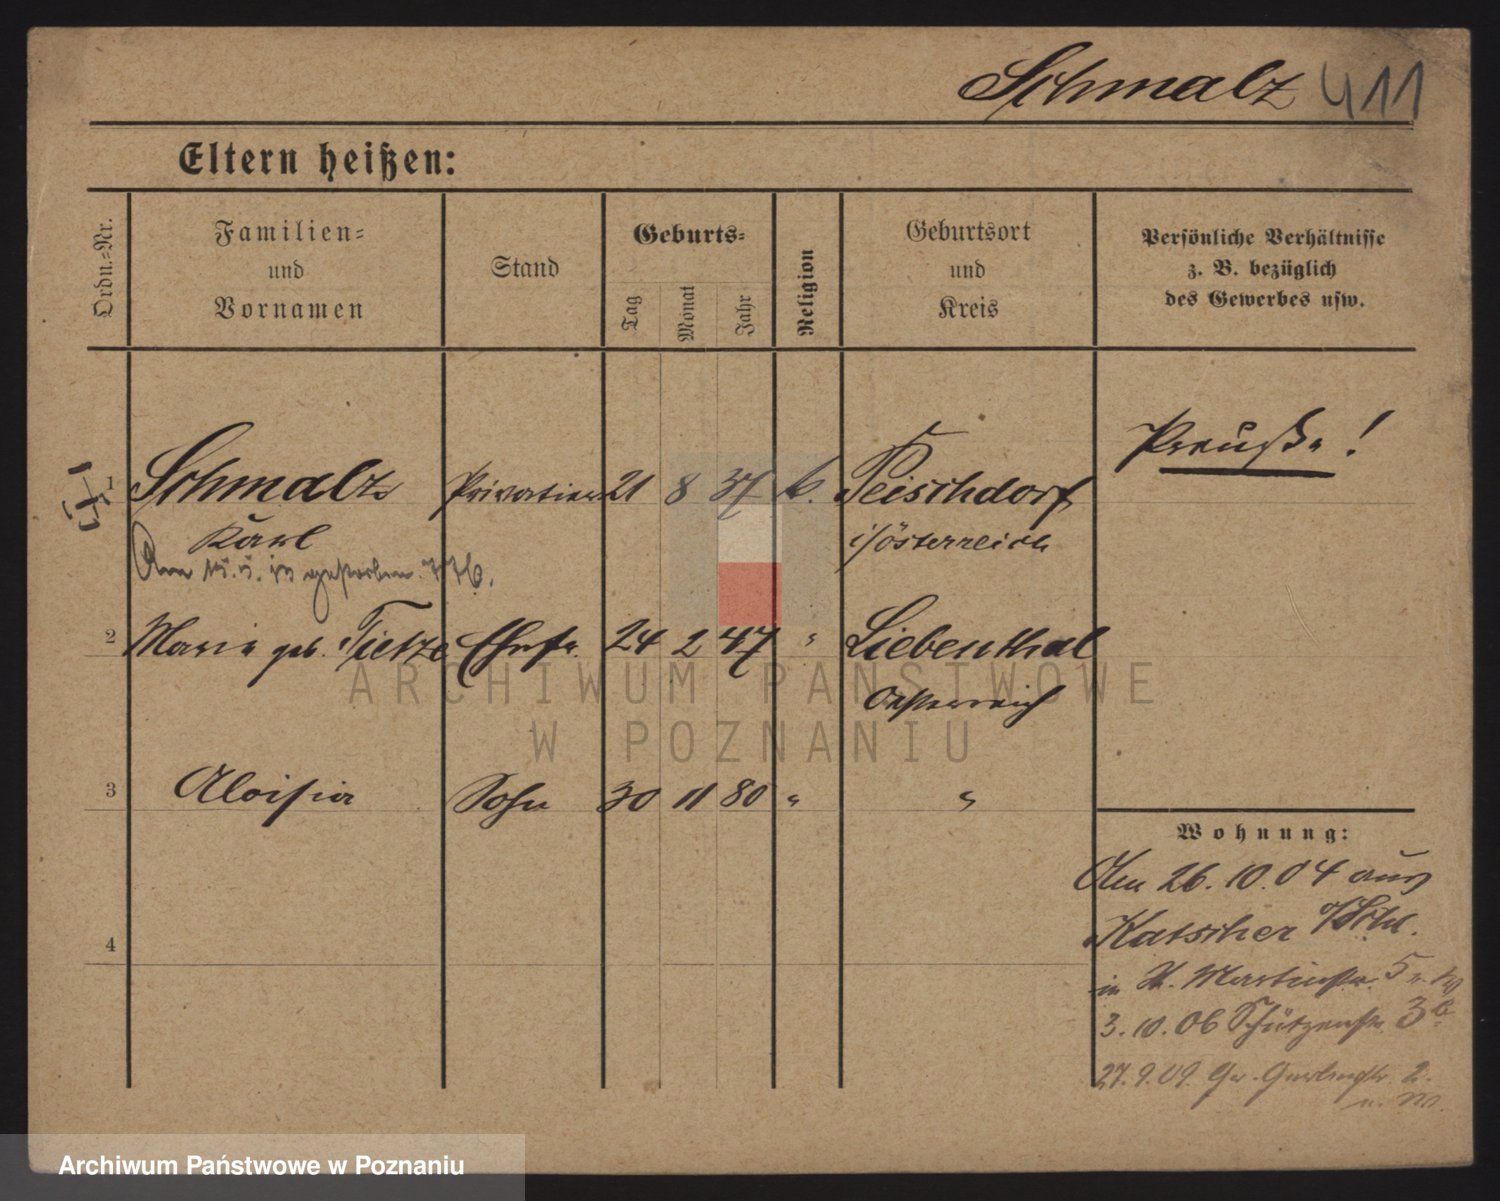 Schmalz 411
Eltern heißen:
Ordn.-Nr.
Familien-
und
Vornamen
Stand
Geburts-
Tag
Monat
Jahr
Religion
Geburtsort
und
Kreis
Persönliche Verhältnisse
z. B. bezüglich
des Gewerbes usw.
Preuße!
1 Schmalz Privatier 21 8 37 k. Peischdorf
Karl i/österreich
Am gestorben.
2 Marie geb. Tietze Ehefr. 24 2 47 " Liebenthal
Oesterreich
3 Aloisia Sohn 30 11 80 " "
4
Wohnung:
Am 26.10.04 aus
Katscher O/Schl.
in St. Martinstr. 5
3.10.06 Schützenstr. 3
27.9.09. Gr. 2.
ARCHIWUM PAŃSTWOWE
W POZNANIU
Archiwum Państwowe w Poznaniu